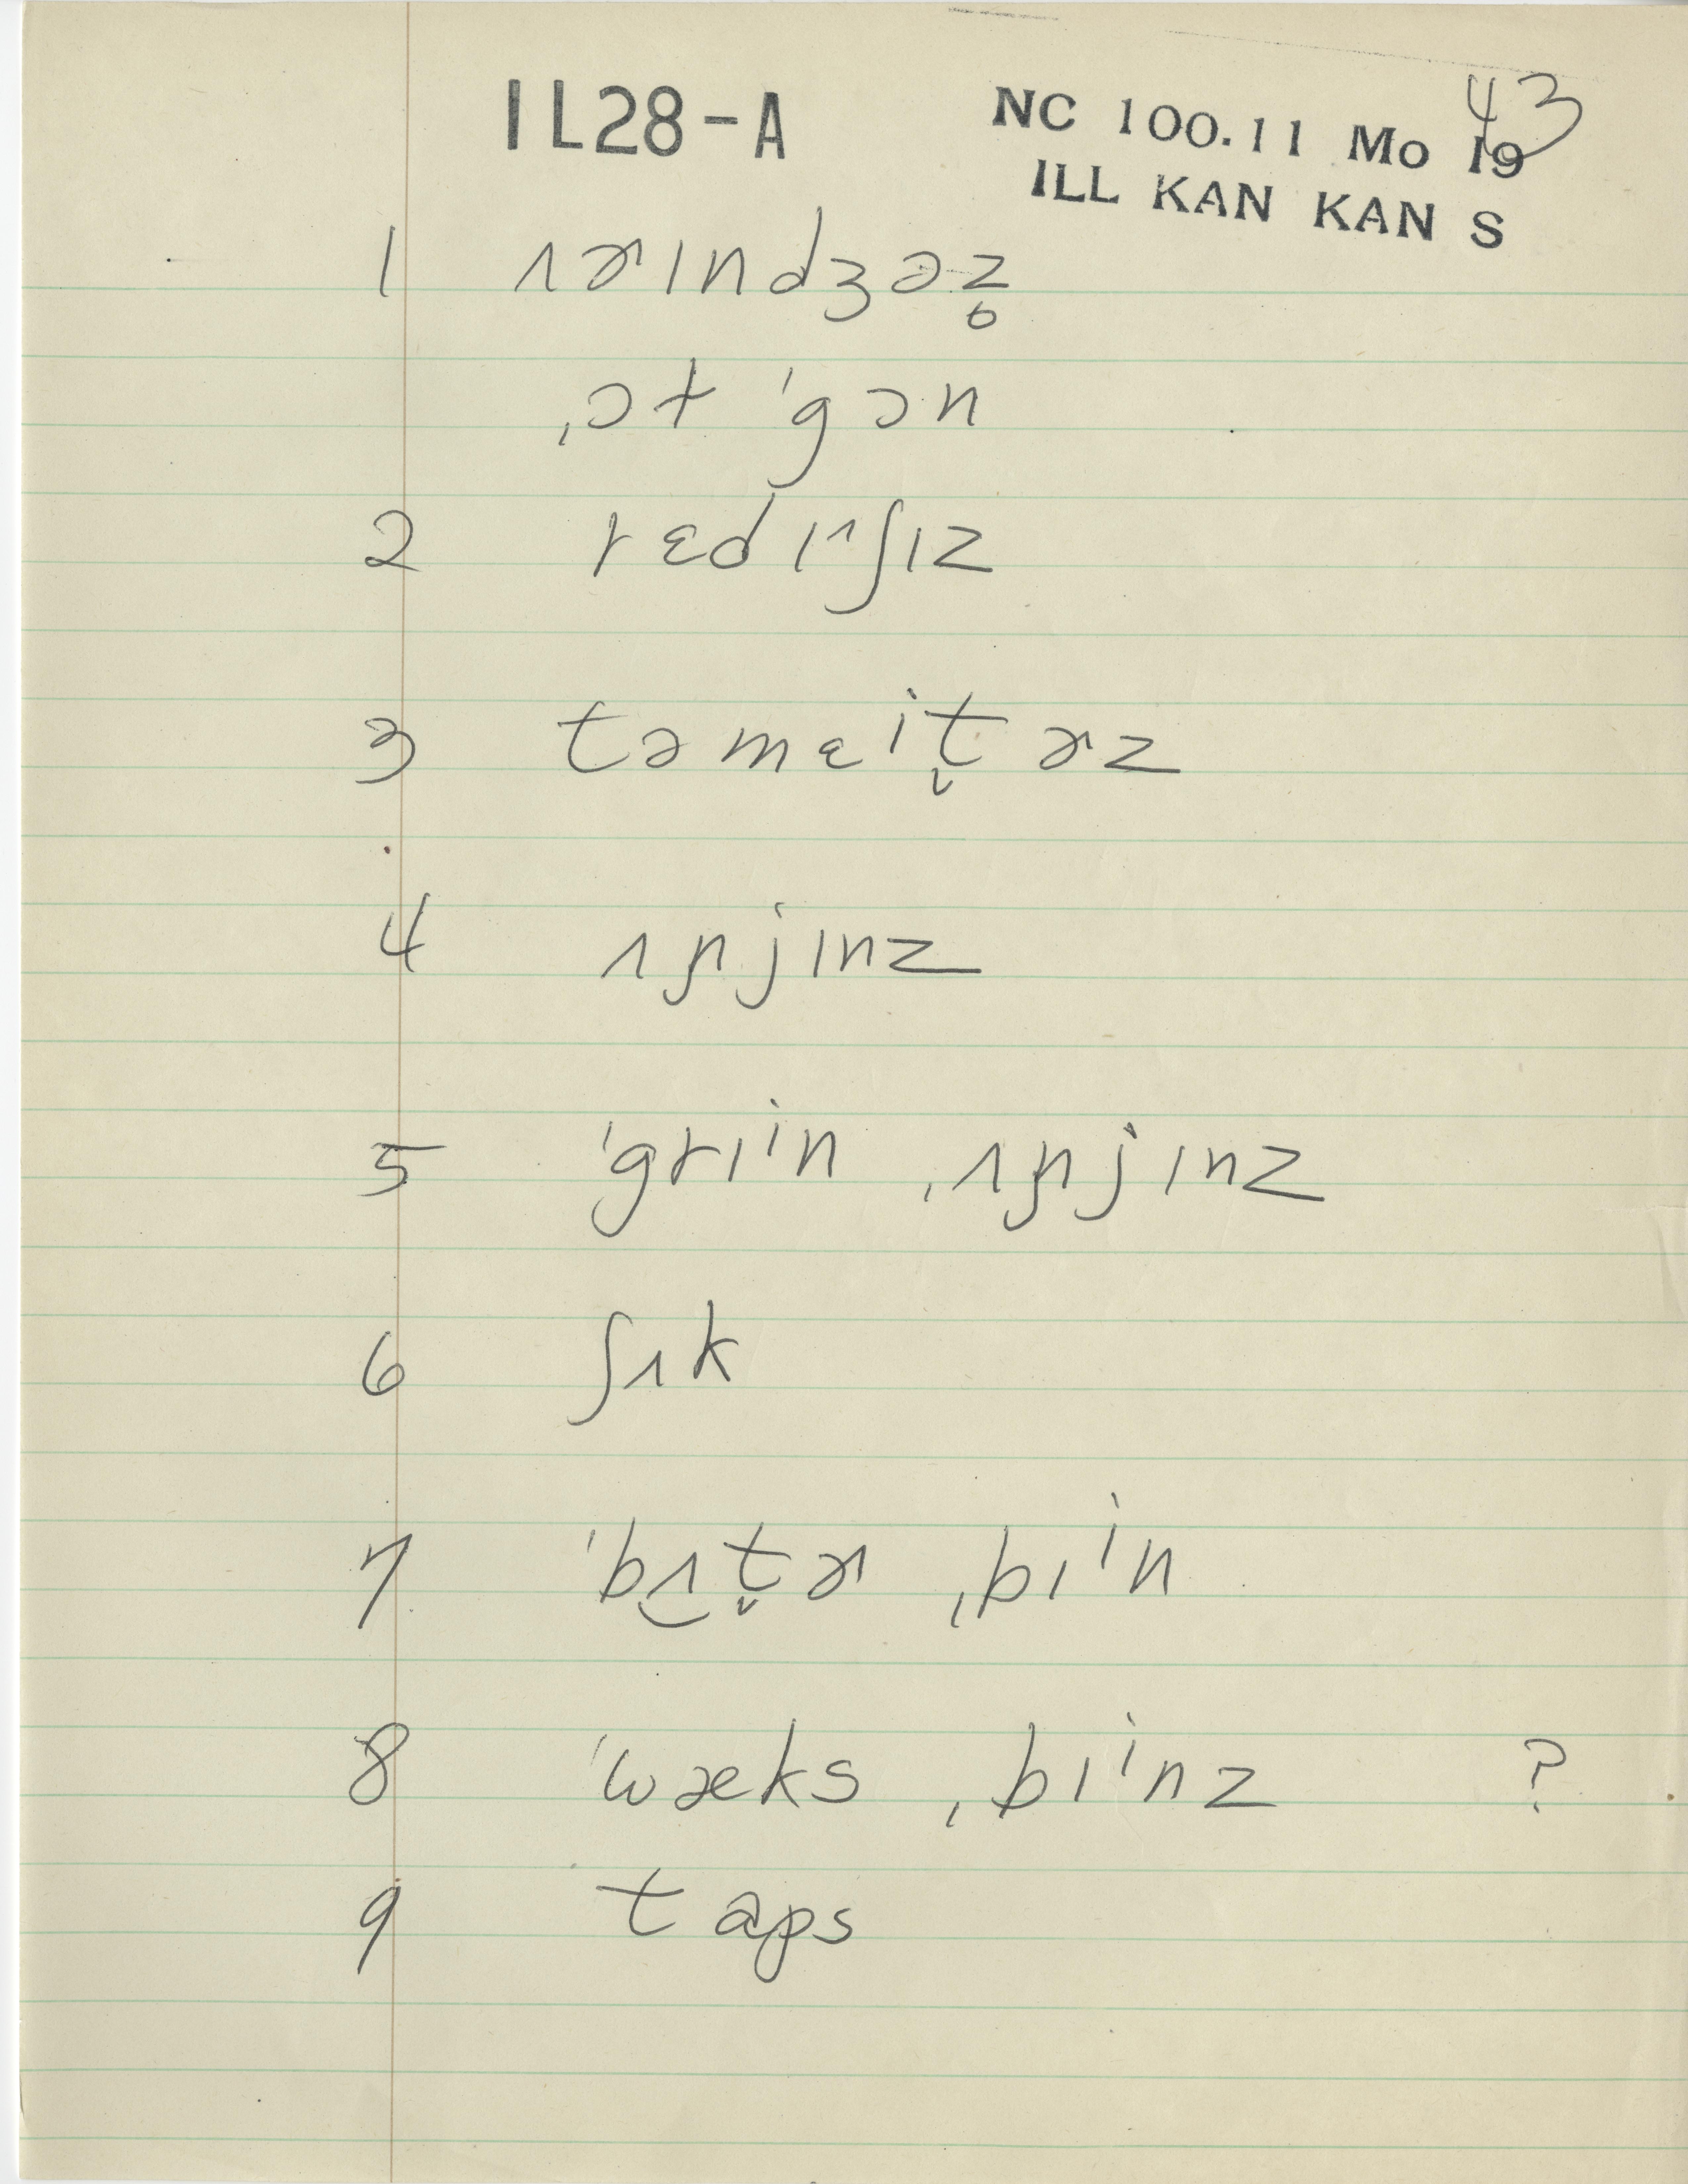 IL28-A
NC 100.11 Mo 19
43
ILL KAN KAN S
1 ʌɚɪndʒəz̥
ˌət ˈgən
2 rɛdɪᶺʃɪz
3 təmɛit̬ɚz
4 ʌɲjɪnz
5 ˈgrɪin ˌʌɲjɪnz
6 ʃʌk
7 ˈbʌt̬ɚ ˌbɪin
8 ˈwæks ˌbɪinz ?
9 taps